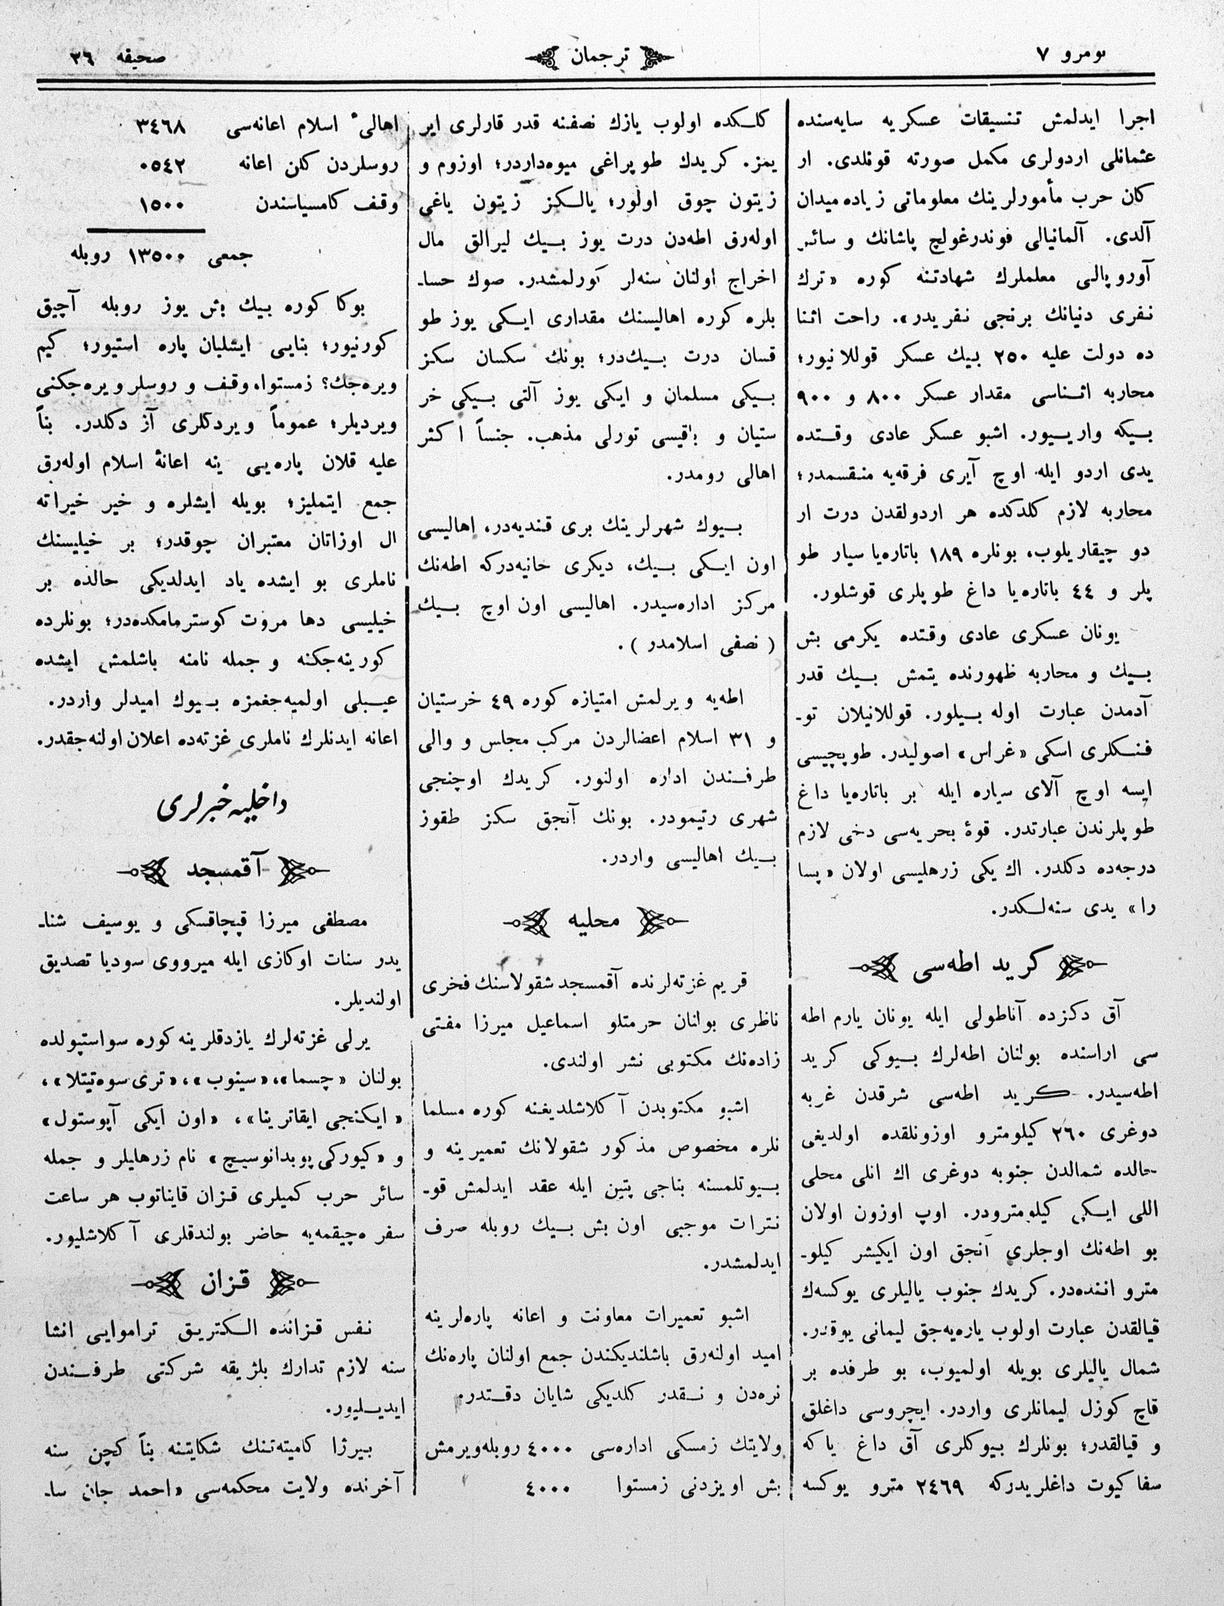 نومرو ٧
ترجمان
صحیفه ٢٦
اجرا ایدلمش تنسیقات عسکریه سایه‌سنده
عثمانلی اردولری مکمل صورته قونلدی. ار
کان حرب مأمورلرینك معلوماتی زیاده میدان
آلدی. آلمانیالی فوندرغولچ پاشانك و سائر
آوروپالی معلملرك شهادتنه کوره «ترك
نفری دنیانك برنجی نفریدر». راحت اثنا
ده دولت علیه ٢٥٠ بیك عسکر قوللانیور؛
محاربه اثناسی مقدار عسکر ٨٠٠ و ٩٠٠
بیکه واریور. اشبو عسکر عادی وقتده
یدی اردو ایله اوچ آیری فرقه‌یه منقسمدر؛
محاربه لازم کلدکده هر اردولقدن درت ار
دو چیقاریلوب، بونلره ١٨٩ باتاره‌یا سیار طو
پلر و ٤٤ باتاره‌یا داغ طوپلری قوشلور.
یونان عسکری عادی وقتده یکرمی بش
بیك و محاربه ظهورنده یتمش بیك قدر
آدمدن عبارت اوله بیلور. قوللانیلان تو‍ـ
فنکلری اسکی «غراس» اصولیدر. طوپچیسی
ایسه اوچ آلای سیاره ایله بر باتاره‌یا داغ
طوپلرندن عبارتدر. قوۀ بحریه‌سی دخی لازم
درجه‌ده دکلدر. اك یکی زرهلیسی اولان «پسا
را» یدی سنه‌لکدر.
کرید اطه‌سی
آق دکزده آناطولی ایله یونان یارم اطه
سی اراسنده بولنان اطه‌لرك بیوکی کرید
اطه‌سیدر. کرید اطه‌سی شرقدن غربه
دوغری ٢٦٠ کیلومترو اوزونلقده اولدیغی
حالده شمالدن جنوبه دوغری اك انلی محلی
اللی ایکی کیلومترودر. اوپ اوزون اولان
بو اطه‌نك اوجلری آنجق اون ایکیشر کیلو‍ـ
مترو اننده‌در. کریدك جنوب یالیلری یوکسه‌ك
قیالقدن عبارت اولوب یاره‌یه‌جق لیمانی یوقدر.
شمال یالیلری بویله اولمیوب، بو طرفده بر
قاچ کوزل لیمانلری واردر. ایچروسی داغلق
و قیالقدر؛ بونلرك بیوکلری آق داغ یاکه
سفاکیوت داغلریدرکه ٢٤٦٩ مترو یوکسه
کلکده اولوب یازك نصفنه قدر قارلری ایر
یمز. کریدك طوپراغی میوه‌داردر؛ اوزوم و
زیتون چوق اولور؛ یالکز زیتون یاغی
اوله‌رق اطه‌دن درت یوز بیك لیرالق مال
اخراج اولنان سنه‌لر کورلمشدر. صوك حسا‍ـ
بلره کوره اهالیسنك مقداری ایکی یوز طو
قسان درت بیك‌در؛ بونك سکسان سکز
بیکی مسلمان و ایکی یوز آلتی بیکی خر
ستیان و باقیسی تورلی مذهب. جنساً اکثر
اهالی رومدر.
بیوك شهرلرینك بری قندیه‌در، اهالیسی
اون ایکی بیك، دیکری خانیه‌درکه اطه‌نك
مرکز اداره‌سیدر. اهالیسی اون اوچ بیك
( نصفی اسلامدر ).
اطه‌یه ویرلمش امتیازه کوره ٤٩ خرستیان
و ٣١ اسلام اعضالردن مرکب مجلس و والی
طرفندن اداره اولنور. کریدك اوچنجی
شهری رتیمودر. بونك آنجق سکز طقوز
بیك اهالیسی واردر.
محلیه
قریم غزته‌لرنده آقمسجد شقولاسنك فخری
ناظری بولنان حرمتلو اسماعیل میرزا مفتی
زاده‌نك مکتوبی نشر اولندی.
اشبو مکتوبدن آکلاشلدیغنه کوره مسلما
نلره مخصوص مذکور شقولانك تعمیرینه و
بیوتلمسنه بناجی پتین ایله عقد ایدلمش قو‍ـ
نترات موجبی اون بش بیك روبله صرف
ایدلمشدر.
اشبو تعمیرات معاونت و اعانه پاره‌لرینه
امید اولنه‌رق باشلندیکندن جمع اولنان پاره‌نك
نره‌دن و نقدر کلدیکی شایان دقتدر.
ولایتك زمسکی اداره‌سی ٤٠٠٠ روبله‌ویرمش
بش اویزدنی زمستوا ٤٠٠٠
اهالیٔ اسلام اعانه‌سی ٣٤٦٨
روسلردن کلن اعانه ٠٥٤٢
وقف کامسیاسندن ١٥٠٠
جمعی ١٣٥٠٠ روبله
بوکا کوره بیك بش یوز روبله آچیق
کورنیور؛ بنایی ایشلیان پاره استیور؛ کیم
ویره‌جك؟ زمستوا، وقف و روسلر ویره‌جکنی
ویردیلر؛ عموماً ویردکلری آز دکلدر. بنأ
علیه قلان پاره‌یی ینه اعانۀ اسلام اوله‌رق
جمع ایتملیز؛ بویله ایشلره و خیر خیراته
ال اوزاتان معتبران چوقدر؛ بر خیلیسنك
ناملری بو ایشده یاد ایدلدیکی حالده بر
خیلیسی دها مروت کوسترمامکده‌در؛ بونلرده
کورینه‌جکنه و جمله نامنه باشلمش ایشده
عیبلی اولمیه‌جغمزه بیوك امیدلر واردر.
اعانه ایدنلرك ناملری غزته‌ده اعلان اولنه‌جقدر.
داخلیه خبرلری
آقمسجد
مصطفی میرزا قپچاقسکی و یوسیف شنا‍ـ
یدر سنات اوکازی ایله میرووی سودیا تصدیق
اولندیلر.
یرلی غزته‌لرك یازدقلرینه کوره سواستپولده
بولنان «چسما»، «سینوب»، «تری سوه‌تیتلا»،
«ایکنجی ایقاترینا»، «اون ایکی آپوستول»
و «کیورکی پوبدانوسیچ» نام زرهلیلر و جمله
سائر حرب کمیلری قزان قایناتوب هر ساعت
سفره چیقمه‌یه حاضر بولندقلری آکلاشلیور.
قزان
نفس قزانده الکتریق تراموایی انشا
سنه لازم تدارك بلژیقه شرکتی طرفندن
ایدیلیور.
بیرژا کامیته‌تنك شکایتنه بنأ کچن سنه
آخرنده ولایت محکمه‌سی «احمد جان سا‍ـ